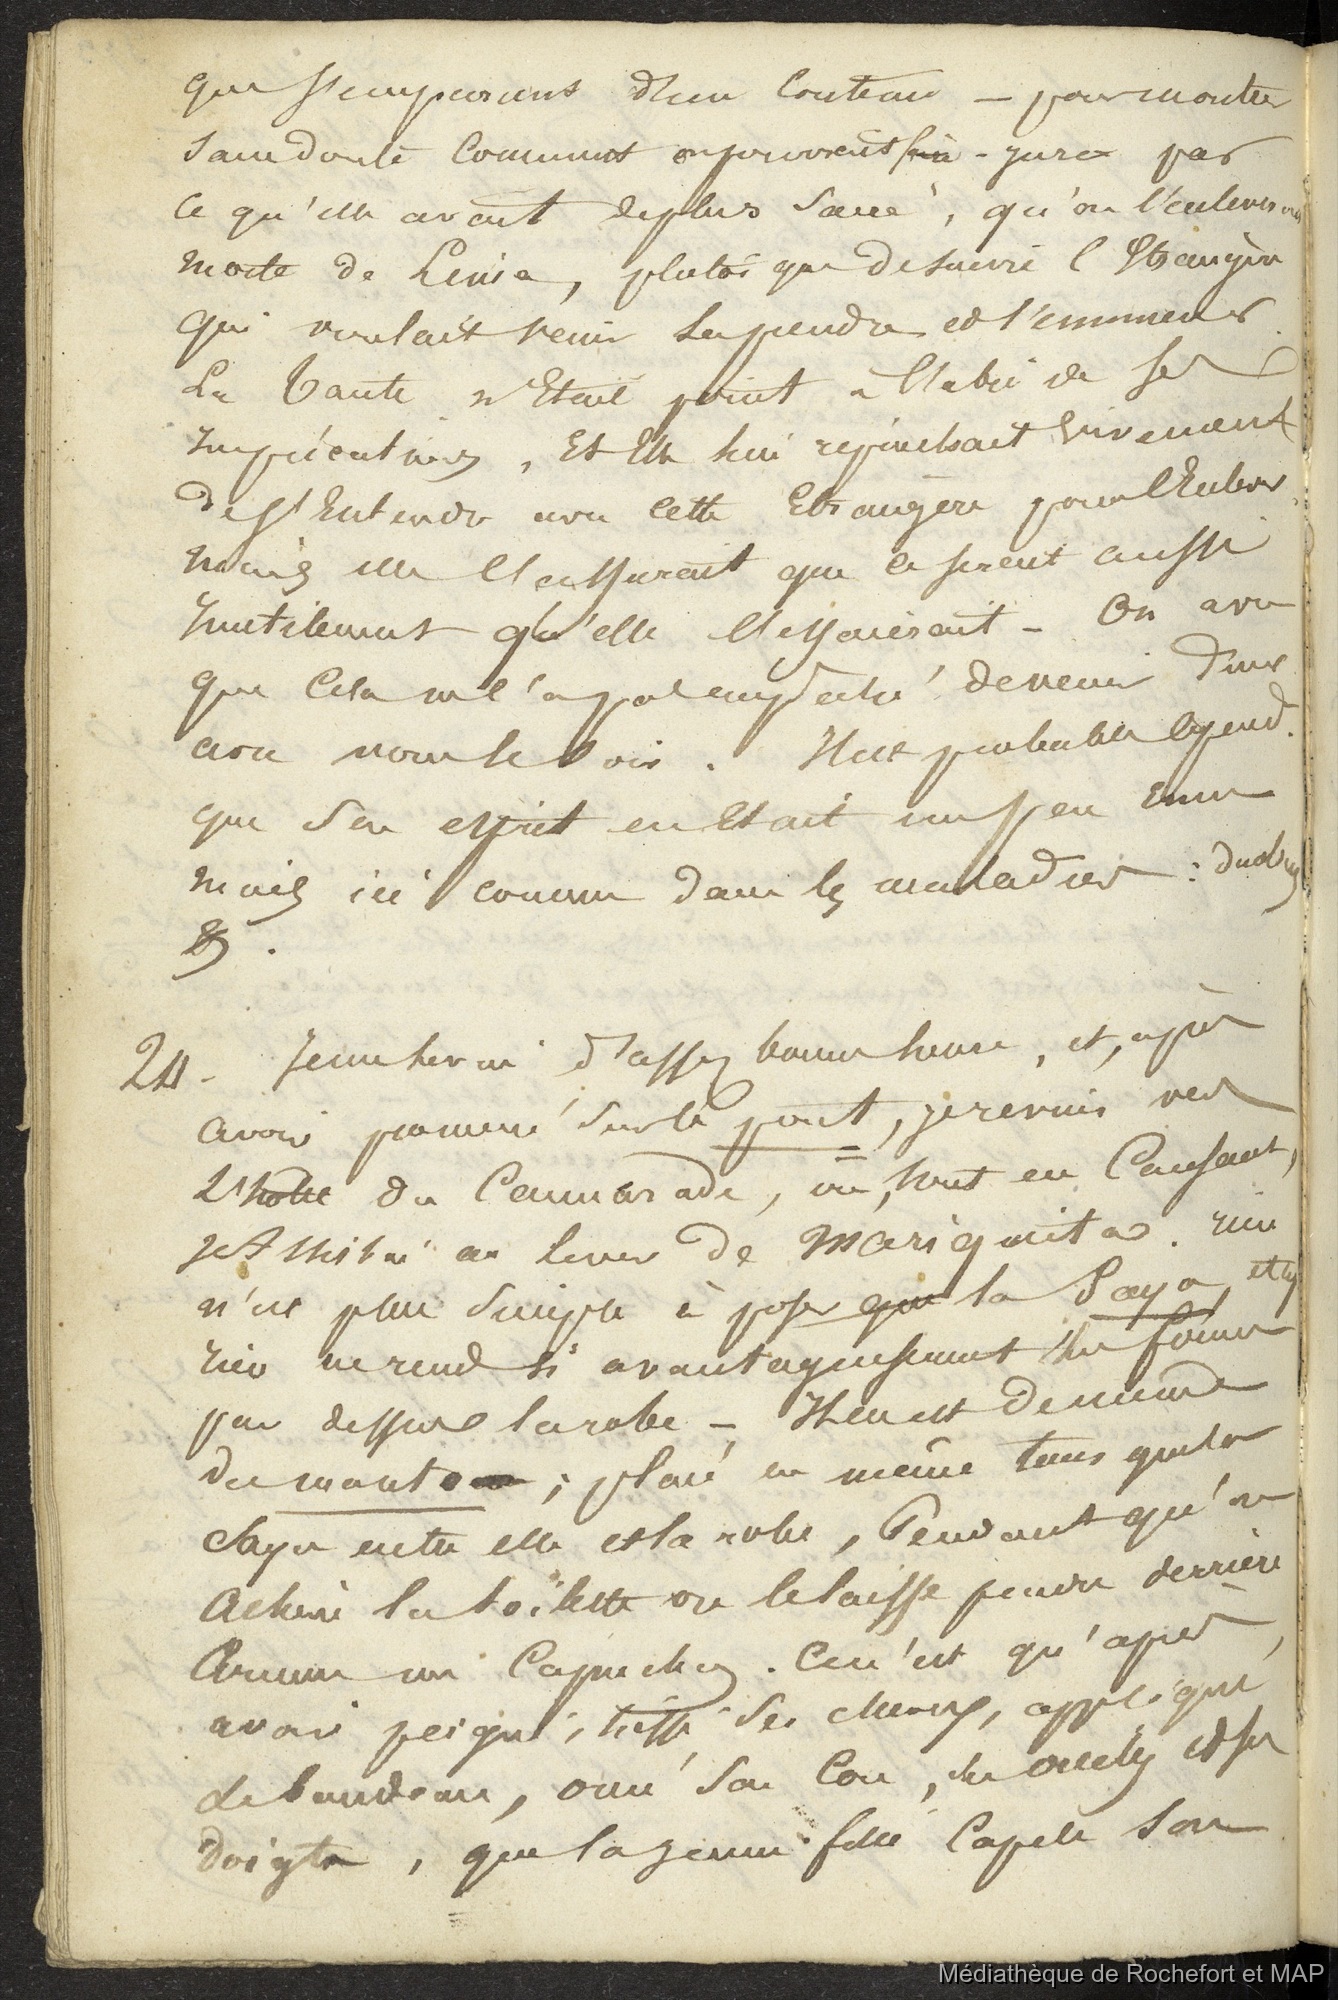 que s'emparant d'un Couteau – pour montrer
sans doute Comment on pouvait – jura par
ce qu'elle avait de plus Sacré, qu'on l'enleverait
morte de Lima, plutôt que de suivre l'Etrangère
qui voulait venir la prendre et l'emmener.
La tante n'Etait point à l'abri de ses
imprécations, Et Elle lui reprochait vivement
de s'Entendre avec cette Etrangère pour l'Enlever
mais elle l'assurait que ce serait aussi
Inutilement qu'elle l'essaierait – On a vu
que Cela ne l'a pas empêché de venir
. Il est probable cepend.
que son esprit en Etait un peu ému
mais ici comme dans les maladies :

24 – Je me levai d'assez bonne heure, et, après
avoir promené sur le pont, je revins vers
L'hôte du Cammarade, où, tout en Causant,
j'Assistai au lever de Mariquita. rien
n'est plus Simple à poser que la Saya, et
rien ne rend si avantageusement les formes
par dessus la robe – Il en est de même
du manto ; placé en même tems que la
Saya entre elle et la robe, Pendant qu'on
Achève la toilette on le laisse pendre derrière
Comme un Capuchon. Ce n'est qu'après
avoir peigné, tressé ses cheveux, appliqué
le bandeau, orné son Cou, ses oreilles et ses
doigts, que la jeune fille Capele son
Médiathèque de Rochefort et MAP